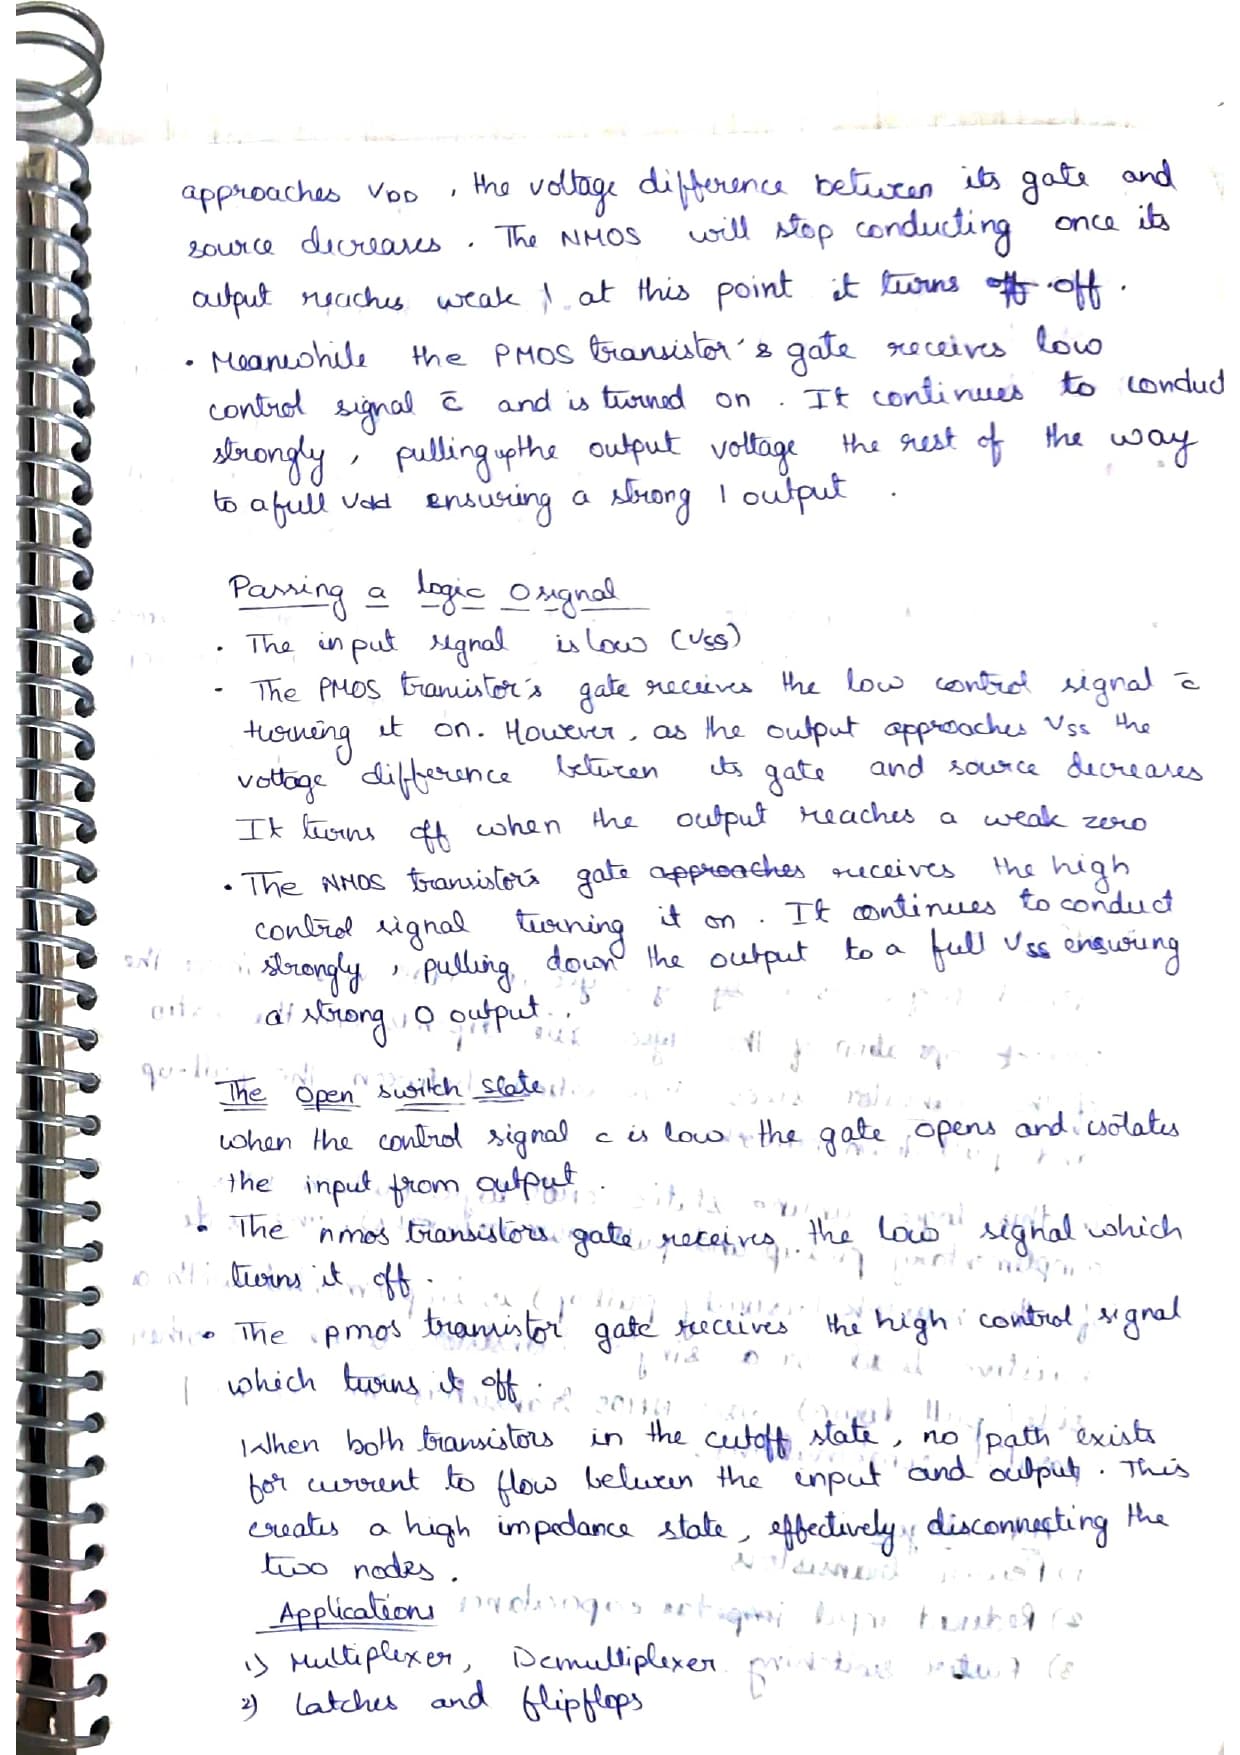 approaches VDD , the voltage difference between its gate and
source decreases . The NMOS will stop conducting once its
output reaches weak 1 at this point it turns off .
• Meanwhile the PMOS transistor's gate receives low
control signal c̄ and is turned on . It continues to conduct
strongly , pulling up the output voltage the rest of the way
to a full Vdd ensuring a strong 1 output .
Passing a logic 0 signal
• The input signal is low (VSS)
- The PMOS transistor's gate receives the low control signal c̄
turning it on. However, as the output approaches VSS the
voltage difference between its gate and source decreases
It turns off when the output reaches a weak zero
• The NMOS transistor's gate approaches receives the high
control signal turning it on . It continues to conduct
strongly , pulling down the output to a full VSS ensuring
a strong 0 output .
The Open switch state
when the control signal c is low the gate opens and isolates
the input from output .
• The nmos transistors gate receives the low signal which
turns it off .
• The pmos transistor gate receives the high control signal
which turns it off .
When both transistors in the cutoff state , no path exists
for current to flow between the input and output . This
creates a high impedance state , effectively disconnecting the
two nodes .
Applications
1) Multiplexer , Demultiplexer
2) Latches and flipflops